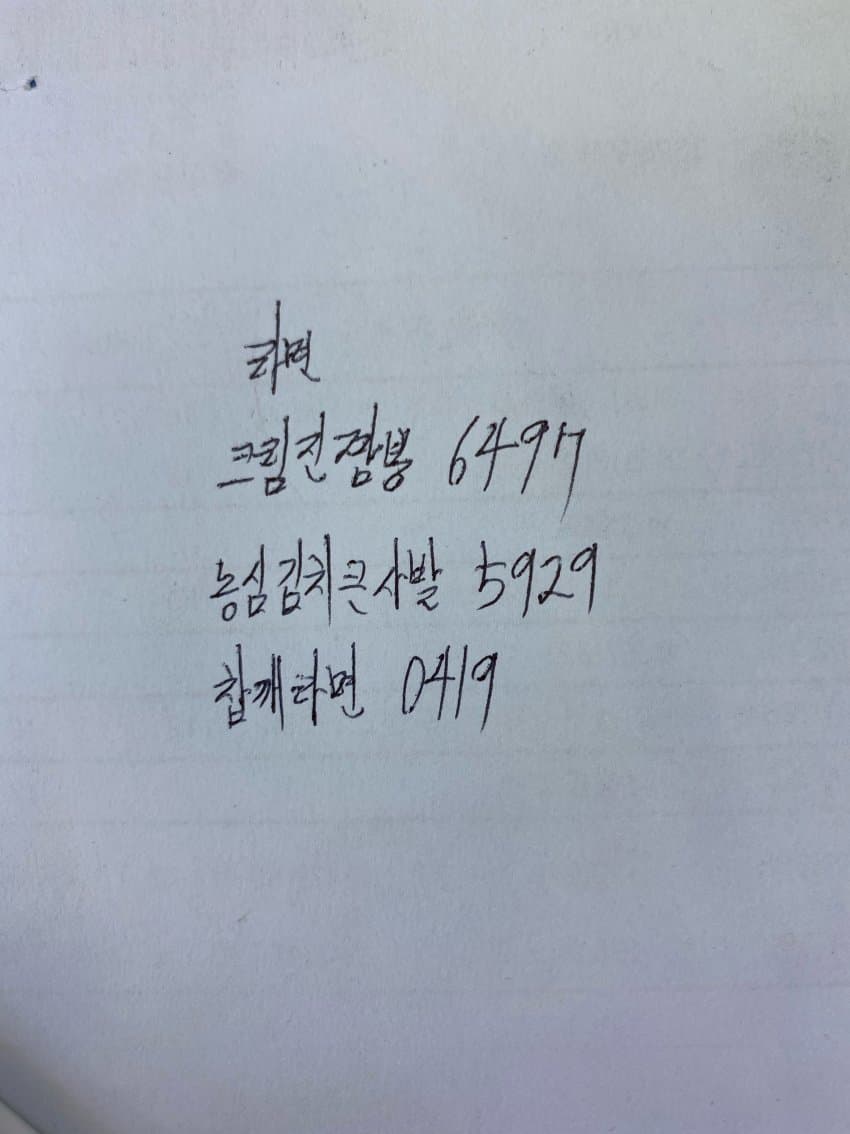 라면
크림진짬뽕 6497
농심김치큰사발 5929
참깨라면 0419